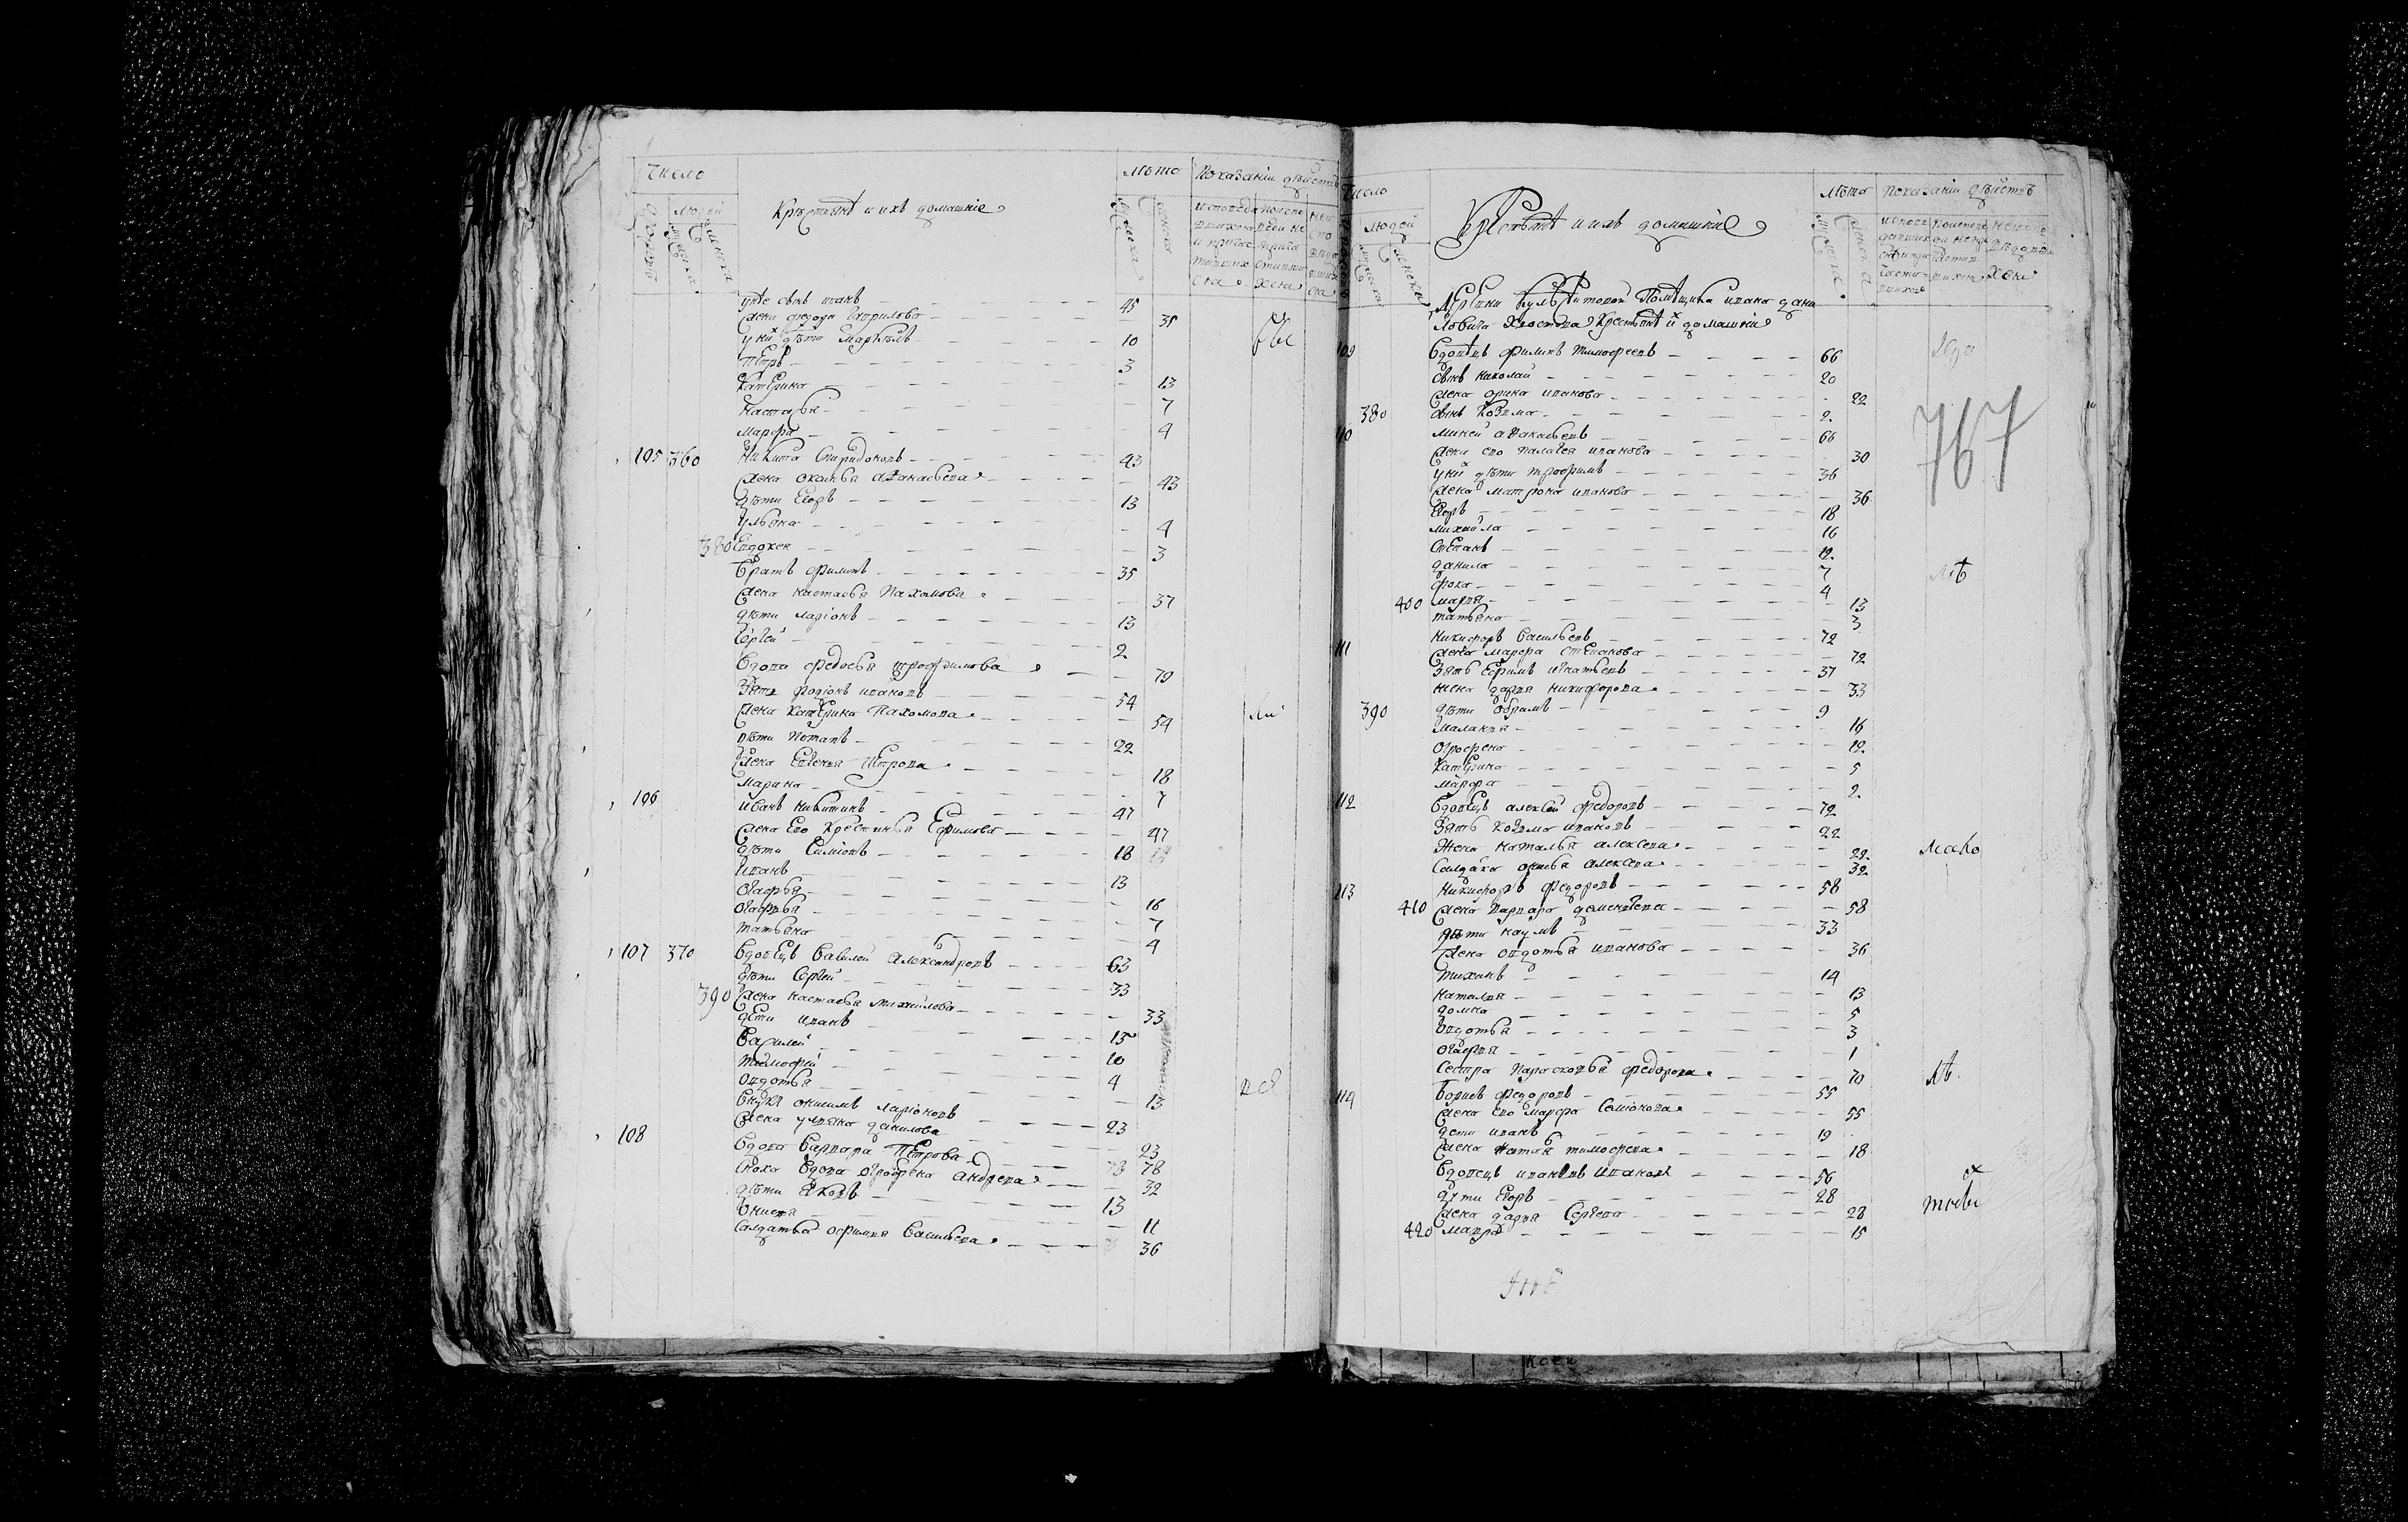 Число
Лѣта
Показаніи дѣйствъ
людей
Крестьянѣ и ихъ домашніе
у нѣе сынъ иванъ 45
жена федора Гаврилова 35
у них дѣти Маркѣлъ 10
Петръ 3
Катерина 13
Настасья 7
Марфа 4
105 360 Никита Спиридоновъ 43
жена Афанасьева 43
дѣти Егоръ 13
Ульяна 4
380 Евдокея 3
братъ филипъ 35
жена настасья Пахомова 37
дѣти ларіонъ 13
Сергей 2
вдова федосья трофимова 70
Зять родіонъ ивановъ 54
жена Катерина Пахомова 54
дѣти Потапъ 22
жена Евгенья Петрова 18
Марина 7
106 иванъ никитинъ 47
жена Его Крестинья Ефимова 47
дѣти Симіонъ 18
Иванъ 13
Огафья 16
Огафья 7
татьяна 4
107 370 вдовецъ Василей Александровъ 63
дѣти Сергей 33
390 жена настасья михайлова 33
дети иванъ 15
Василей 10
тимофей 4
овдотья 13
внукъ онисимъ ларіоновъ 23
жена ульяна данилова 23
108 вдова варвара Петрова 78
сноха вдова огрофена Андрева 32
дѣти Яковъ 13
Онисья 11
салдатка офимья васильева 36
Число
Лѣта
Показаніи дѣйствъ
людей
Крестьянѣ и ихъ домашніе
Деревни Помѣщика ивана дани
ловича Хвостова Крестьянѣ и домашніи
109 вдовецъ филипъ тимофеевъ 66
сынъ николай 20
жена орина иванова 22
380 сынъ Козма 2
110 миней 66
жена ево палагея иванова 30
у них дѣти трофимъ 36
жена матрона иванова 36
Егоръ 18
михайла 16
степанъ 12
данила 7
фока 4
400 марья 13
татьяна 3
111 никифоръ васильевъ 72
жена марфа степанова 72
зять Ефимъ игнатьевъ 37
жена дарья никифорова 33
390 дѣти обрамъ 9
маланья 16
огрофена 12
катерина 5
марфа 2
112 вдовецъ алексей федоровъ 72
зять козма ивановъ 22
жена наталья алексева 22
салдатка алексева 32
113 никифоръ федоровъ 58
410 жена варвара дементева 58
дѣти наумъ 33
жена овдотья иванова 36
тихонъ 14
наталья 13
домна 5
овдотья 3
огафья 1
сестра парасковья федорова 70
114 борисъ федоровъ 55
жена ево марфа семіонова 55
дети иванъ 19
жена тимофева 18
вдовецъ ивановъ 56
дѣти Егоръ 28
жена дарья Сергева 28
420 мавра 15
767